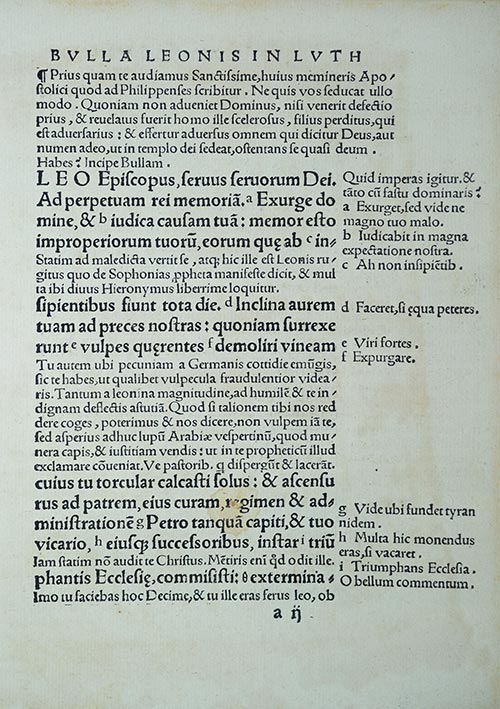 BVLLA LEONIS IN LVTH
¶ Prius quam te audiamus Sanctissime, huius memineris Apo⸗
stolici quod ad Philippenses scribitur. Ne quis vos seducat ullo
modo. Quoniam non adueniet Dominus, nisi venerit defectio
prius, & reuelatus fuerit homo ille scelerosus, filius perditus, qui
est aduersarius: & effertur aduersus omnem qui dicitur Deus, aut
numen adeo, ut in templo dei sedeat, ostentans se quasi deum.
Habes? Incipe Bullam.
LEO Episcopus, seruus seruorum Dei.
Ad perpetuam rei memoriā. a Exurge do
mine, & b iudica causam tuā: memor esto
improperiorum tuorū, eorum quę ab c in⸗
Statim ad maledicta vertit se, atq; hic ille est Leonis ru⸗
gitus quo de Sophonias, ppheta manifeste dicit, & mul
ta ibi diuus Hieronymus liberrime loquitur.
sipientibus fiunt tota die. d Inclina aurem
tuam ad preces nostras: quoniam surrexe
runt e vulpes quęrentes f demoliri vineam
Tu autem ubi pecuniam a Germanis cottidie emūgis,
sic te habes, ut qualibet vulpecula fraudulentior videa⸗
ris. Tantum a leonina magnitudine, ad humilē & te in⸗
dignam deflectis astutiā. Quod si talionem tibi nos red
dere coges, poterimus & nos dicere, non vulpem iā te,
sed asperius adhuc lupū Arabiæ vespertinū, quod mu⸗
nera capis, & iustitiam vendis: ut in te propheticū illud
exclamare cōueniat. Ve pastorib. q dispergūt & lacerāt.
cuius tu torcular calcasti solus: & ascensu
rus ad patrem, eius curam, regimen & ad⸗
ministrationē g Petro tanquā capiti, & tuo
vicario, h eiusq; successoribus, instar i triū
Iam statim nō audit te Christus. Mētiris eni q̄d odit ille.
phantis Ecclesię, commisisti: θ extermina⸗
Imo tu faciebas hoc Decime, & tu ille eras ferus leo, ob
a ij
Quid imperas igitur. &
tāto cū fastu dominaris?
a Exurget, sed vide ne
magno tuo malo.
b Iudicabit in magna
expectatione nostra.
c Ah non insipiētib.
d Faceret, si ęqua peteres.
e Viri fortes.
f Expurgare.
g Vide ubi fundet tyran
nidem.
h Multa hic monendus
eras, si vacaret.
i Triumphans Ecclesia.
O bellum commentum.